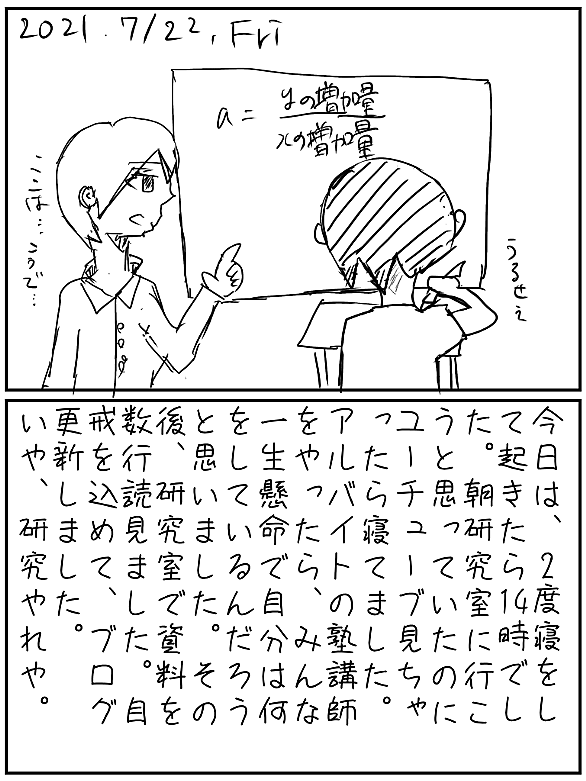 2021.7/22, Fri
a = yの増加量
xの増加量
うるせえ
ここは…
こうで…
今日は、2度寝をし
て起きたら14時でし
た。朝研究室に行こ
うと思っていたのに
ユーチューブ見ちゃ
ったら寝てました。
アルバイトの塾講師
をやったら、みんな
一生懸命で自分は何
をしているんだろう
と思いました。その
後、研究室で資料を
数行読見ました。自
戒を込めて、ブログ
更新しました。
いや、研究やれや。